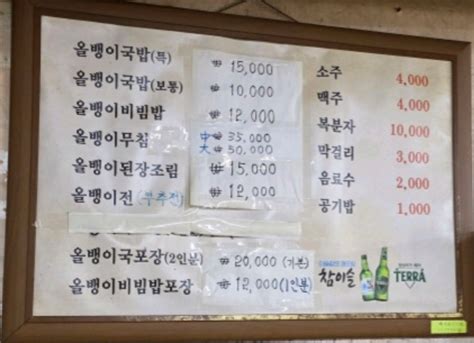 올뱅이국밥(특) ₩ 15,000
올뱅이국밥(보통) ₩ 10,000
올뱅이비빔밥 ₩ 12,000
올뱅이무침 中 ₩ 35,000
大 ₩ 50,000
올뱅이된장조림 ₩ 15,000
올뱅이전 (부추전) ₩ 12,000
올뱅이국포장(2인분) ₩ 20,000 (기본)
올뱅이비빔밥포장 ₩ 12,000(1인분)
소주 4,000
맥주 4,000
복분자 10,000
막걸리 3,000
음료수 2,000
공기밥 1,000
참이슬
TERRA